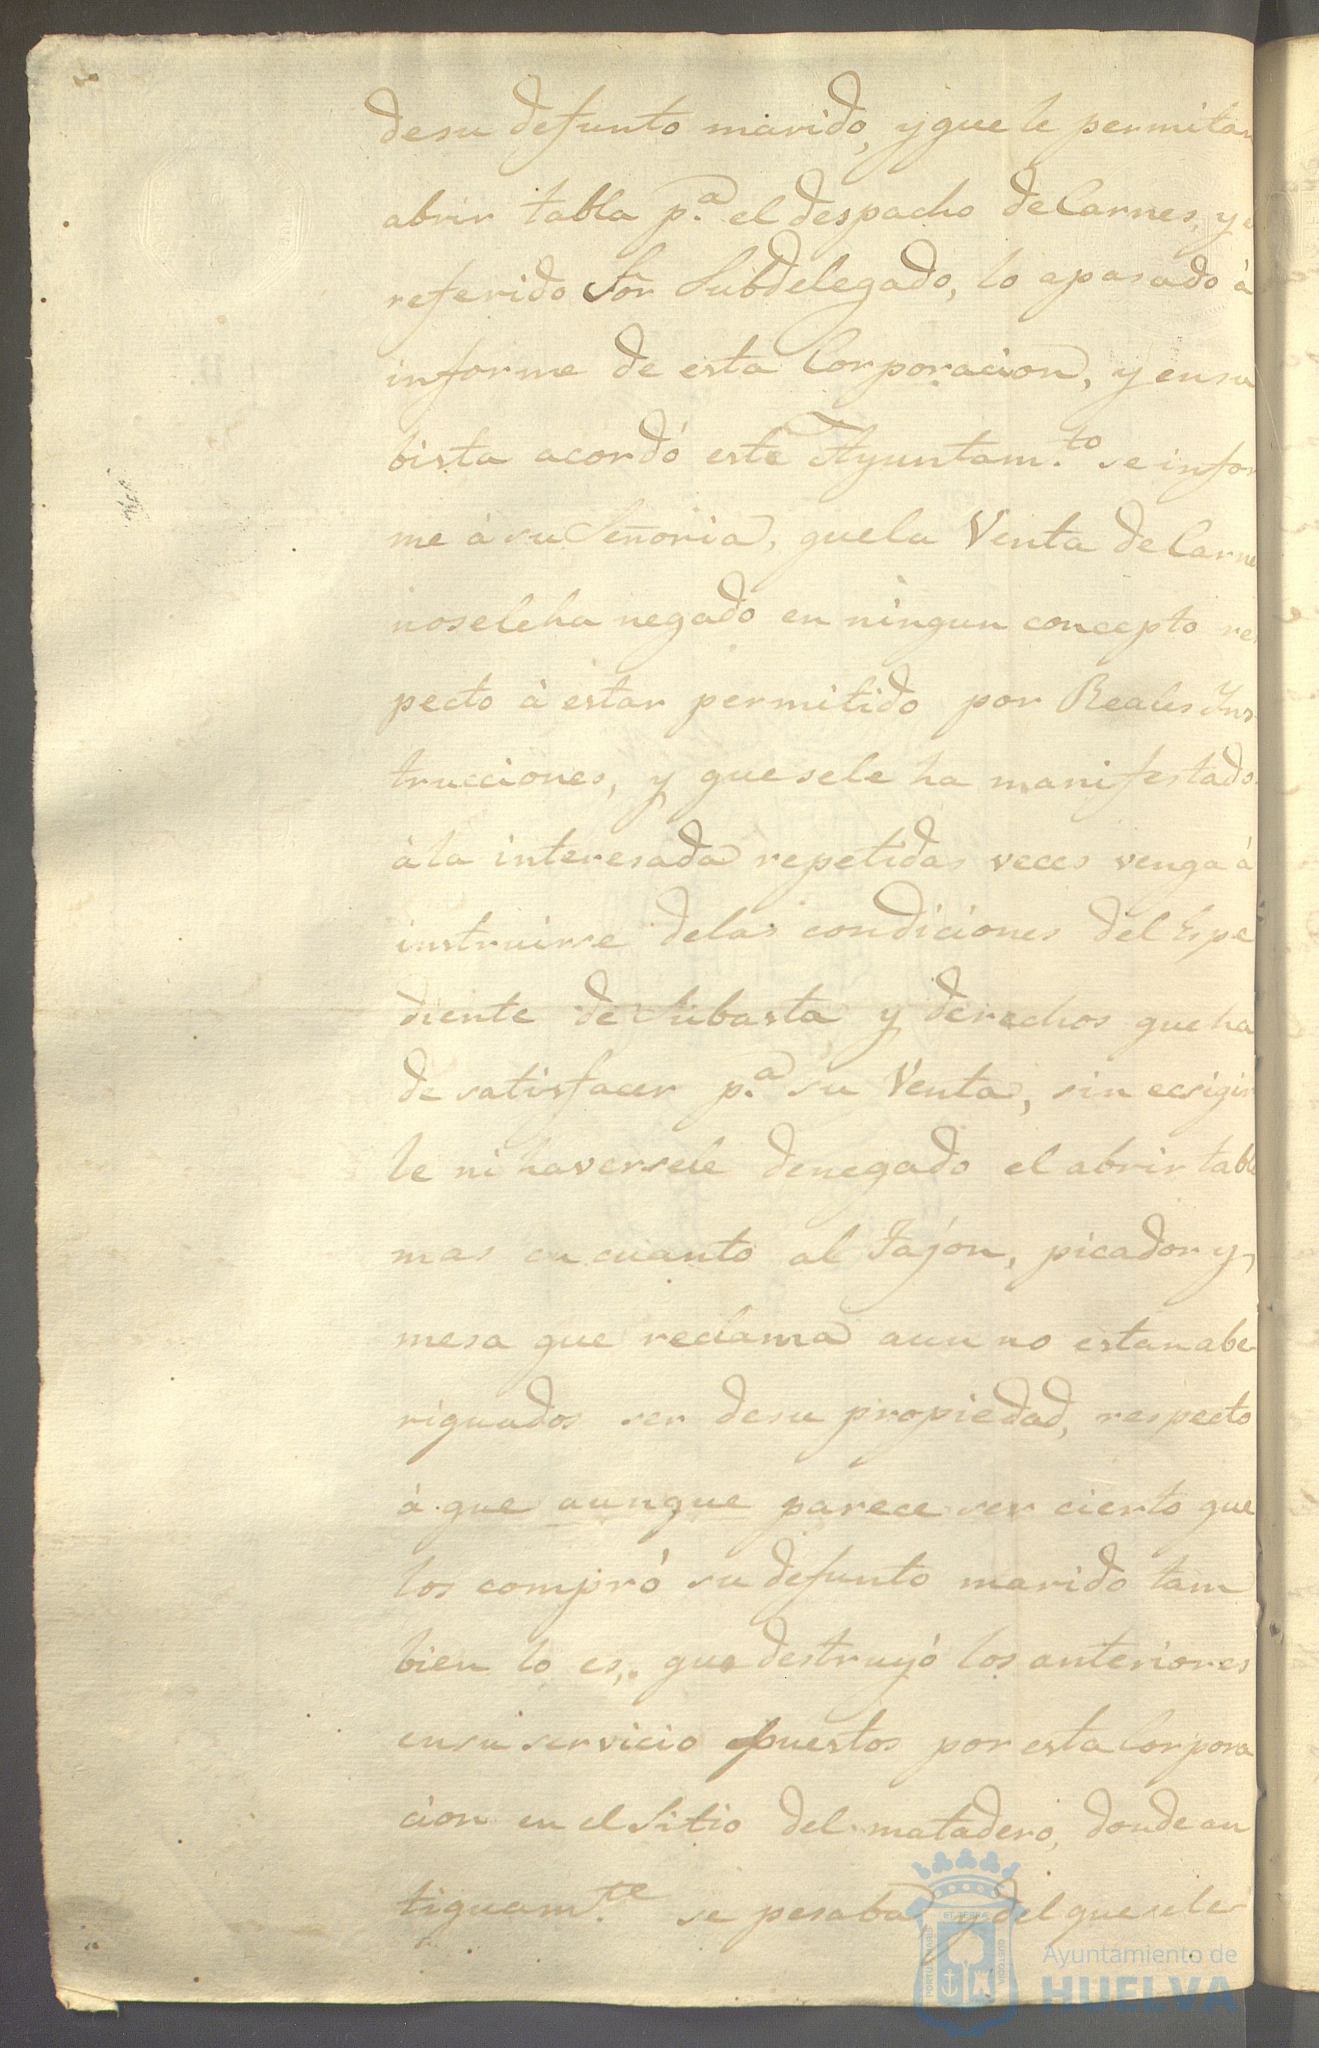 desu defunto marido, yque le permitan
abrir tabla p.a el despacho de Carnes, y el
referido Sor Subdelegado, lo apasado à
informe de esta Corporacion, y ensu
bista acordó este Ayuntam.to se infor
me à su Señoria, quela Venta de Carnes
noseleha negado en ningun concepto res
pecto à estar permitido por Reales Yns
trucciones, y quesele ha manifestado
àla interesada repetidas veces venga à
instruirse delas condiciones del Espe
diente de Subasta y derechos queha
de satisfacer p.a su Venta, sin ecsigir
le ni haversele denegado el abrir tabla
mas en cuanto al Tajón, picador y
mesa que reclama aun no estan abe
riguados ser desu propiedad, respecto
à que aunque parece ser cierto que
los compró su defunto marido tam
bien lo es, que destruyó los anteriores
ensu servicio puestos por esta Corpora
cion en el Sitio del matadero, donde an
tiguam.te se pesaba y del quesele
Ayuntamiento de
HUELVA